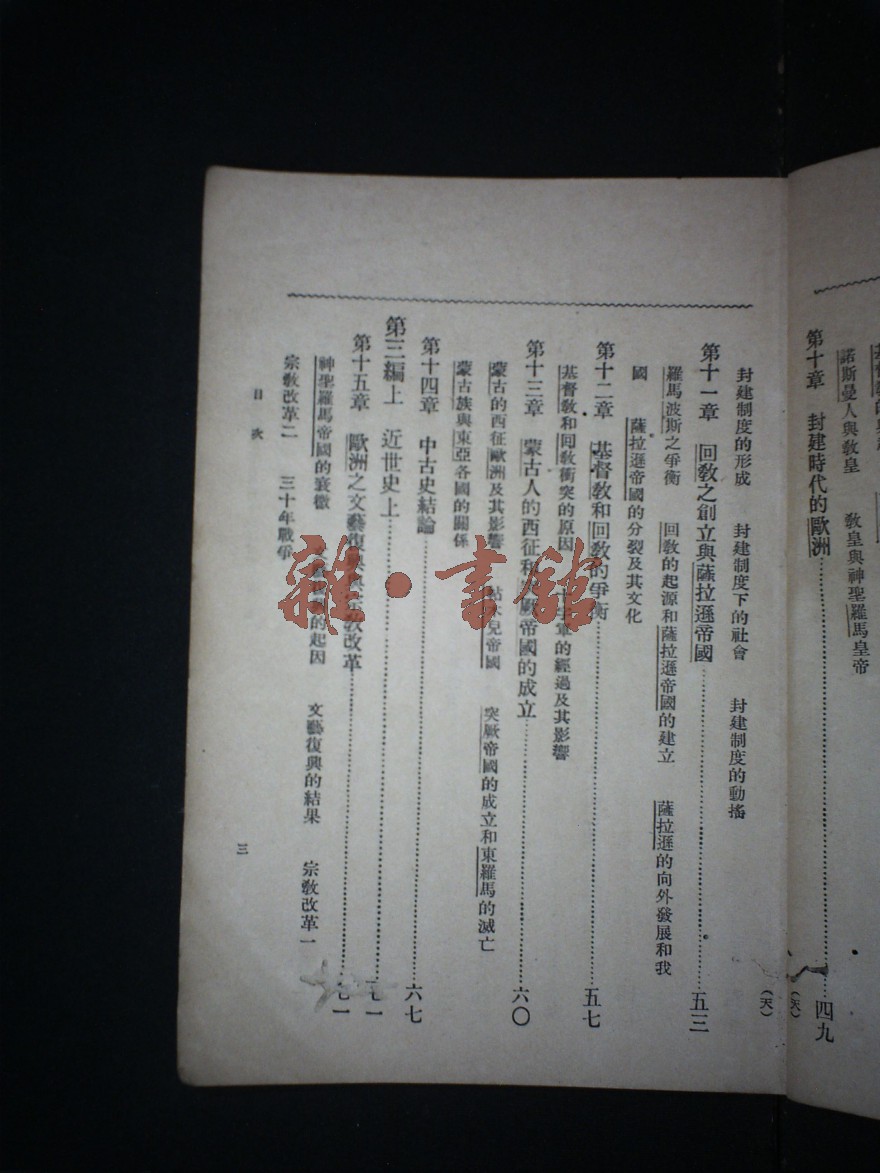 諾斯曼人與敎皇　敎皇與神聖羅馬皇帝
第十章　封建時代的歐洲……四九
(天)
封建制度的形成　封建制度下的社會　封建制度的動搖
(天)
第十一章　回敎之創立與薩拉遜帝國……五三
羅馬波斯之爭衡　回敎的起源和薩拉遜帝國的建立　薩拉遜的向外發展和我
國　薩拉遜帝國的分裂及其文化
第十二章　基督敎和回敎的爭衡……五七
基督敎和回敎衝突的原因　十字軍的經過及其影響
第十三章　蒙古人的西征和突厥帝國的成立……六〇
蒙古的西征歐洲及其影響　帖木兒帝國　突厥帝國的成立和東羅馬的滅亡
蒙古族與東亞各國的關係
第十四章　中古史結論……六七
第三編上　近世史上……七一
第十五章　歐洲之文藝復興與宗敎改革……七一
神聖羅馬帝國的衰微　文藝復興的起因　文藝復興的結果　宗敎改革一
宗敎改革二　三十年戰爭
目次
三
雜·書館